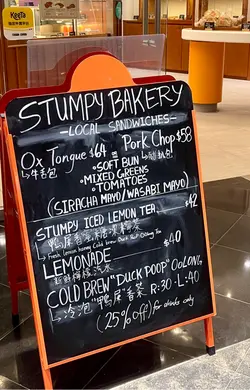 KeeTa
STUMPY BAKERY
- LOCAL SANDWICHES -
Ox Tongue $64 Pork Chop $58
↳ 牛舌包 ↳ 豬扒包
• SOFT BUN
• MIXED GREENS
• TOMATOES
(SIRACHA MAYO/WASABI MAYO)
STUMPY ICED LEMON TEA $42
↳ 鴨屎香
Fresh lemon
LEMONADE $40
↳ 新鮮檸檬汽水
COLD BREW "DUCK POOP" OOLONG
↳ 冷泡 "鴨屎香茶" R:30 - L:40
(25% off) for drinks only